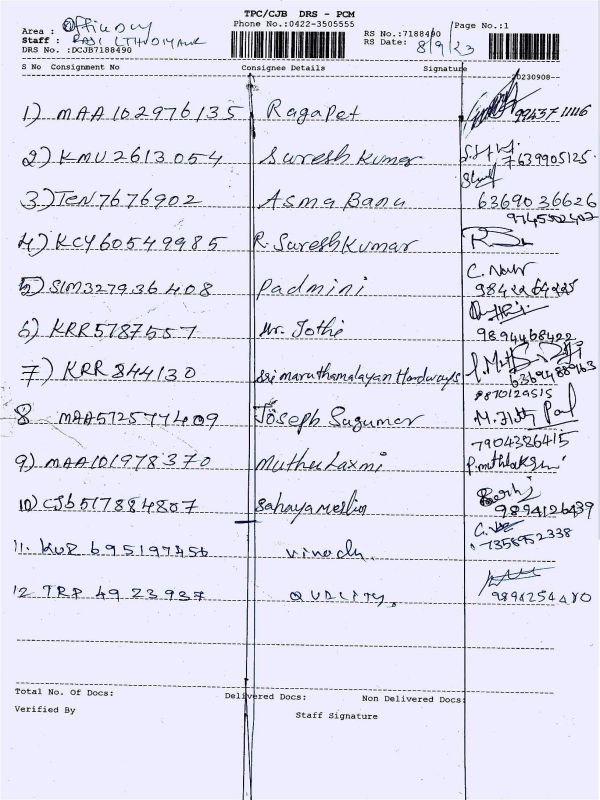 TPC/CJB DRS - PCM
Phone No.:0422-3505555
Area : Office Dly
Staff :
DRS No. :DCJB7188490
RS No.:7188490
RS Date: 8/9/23
/Page No.:1
S No Consignment No Consignee Details Signature
20230908
1) MAA102976135 Ragapet 9943711116
2) KMU2613054 Suresh Kumar 7639905125
3) TEN7676902 Asma Banu 6369036626
9745502402
4) KCY60549985 R. SureshKumar
5) SIM327936408 Padmini C.
6) KRR5187557 Mr. Jothi 9894468422
7) KRR844130 Sri maruthamalayan Hardways
9870129515
8 MAA572577409 Joseph Sugumar
7904386415
9) MAA101978370 Muthu Laxmi
10) CJB517884807 Sahaya 9894126439
7358952338
11. KUR 695197456 Vinoch.
12 TRP 4923937 QUALITY.
Total No. Of Docs: Delivered Docs: Non Delivered Docs:
Verified By Staff Signature